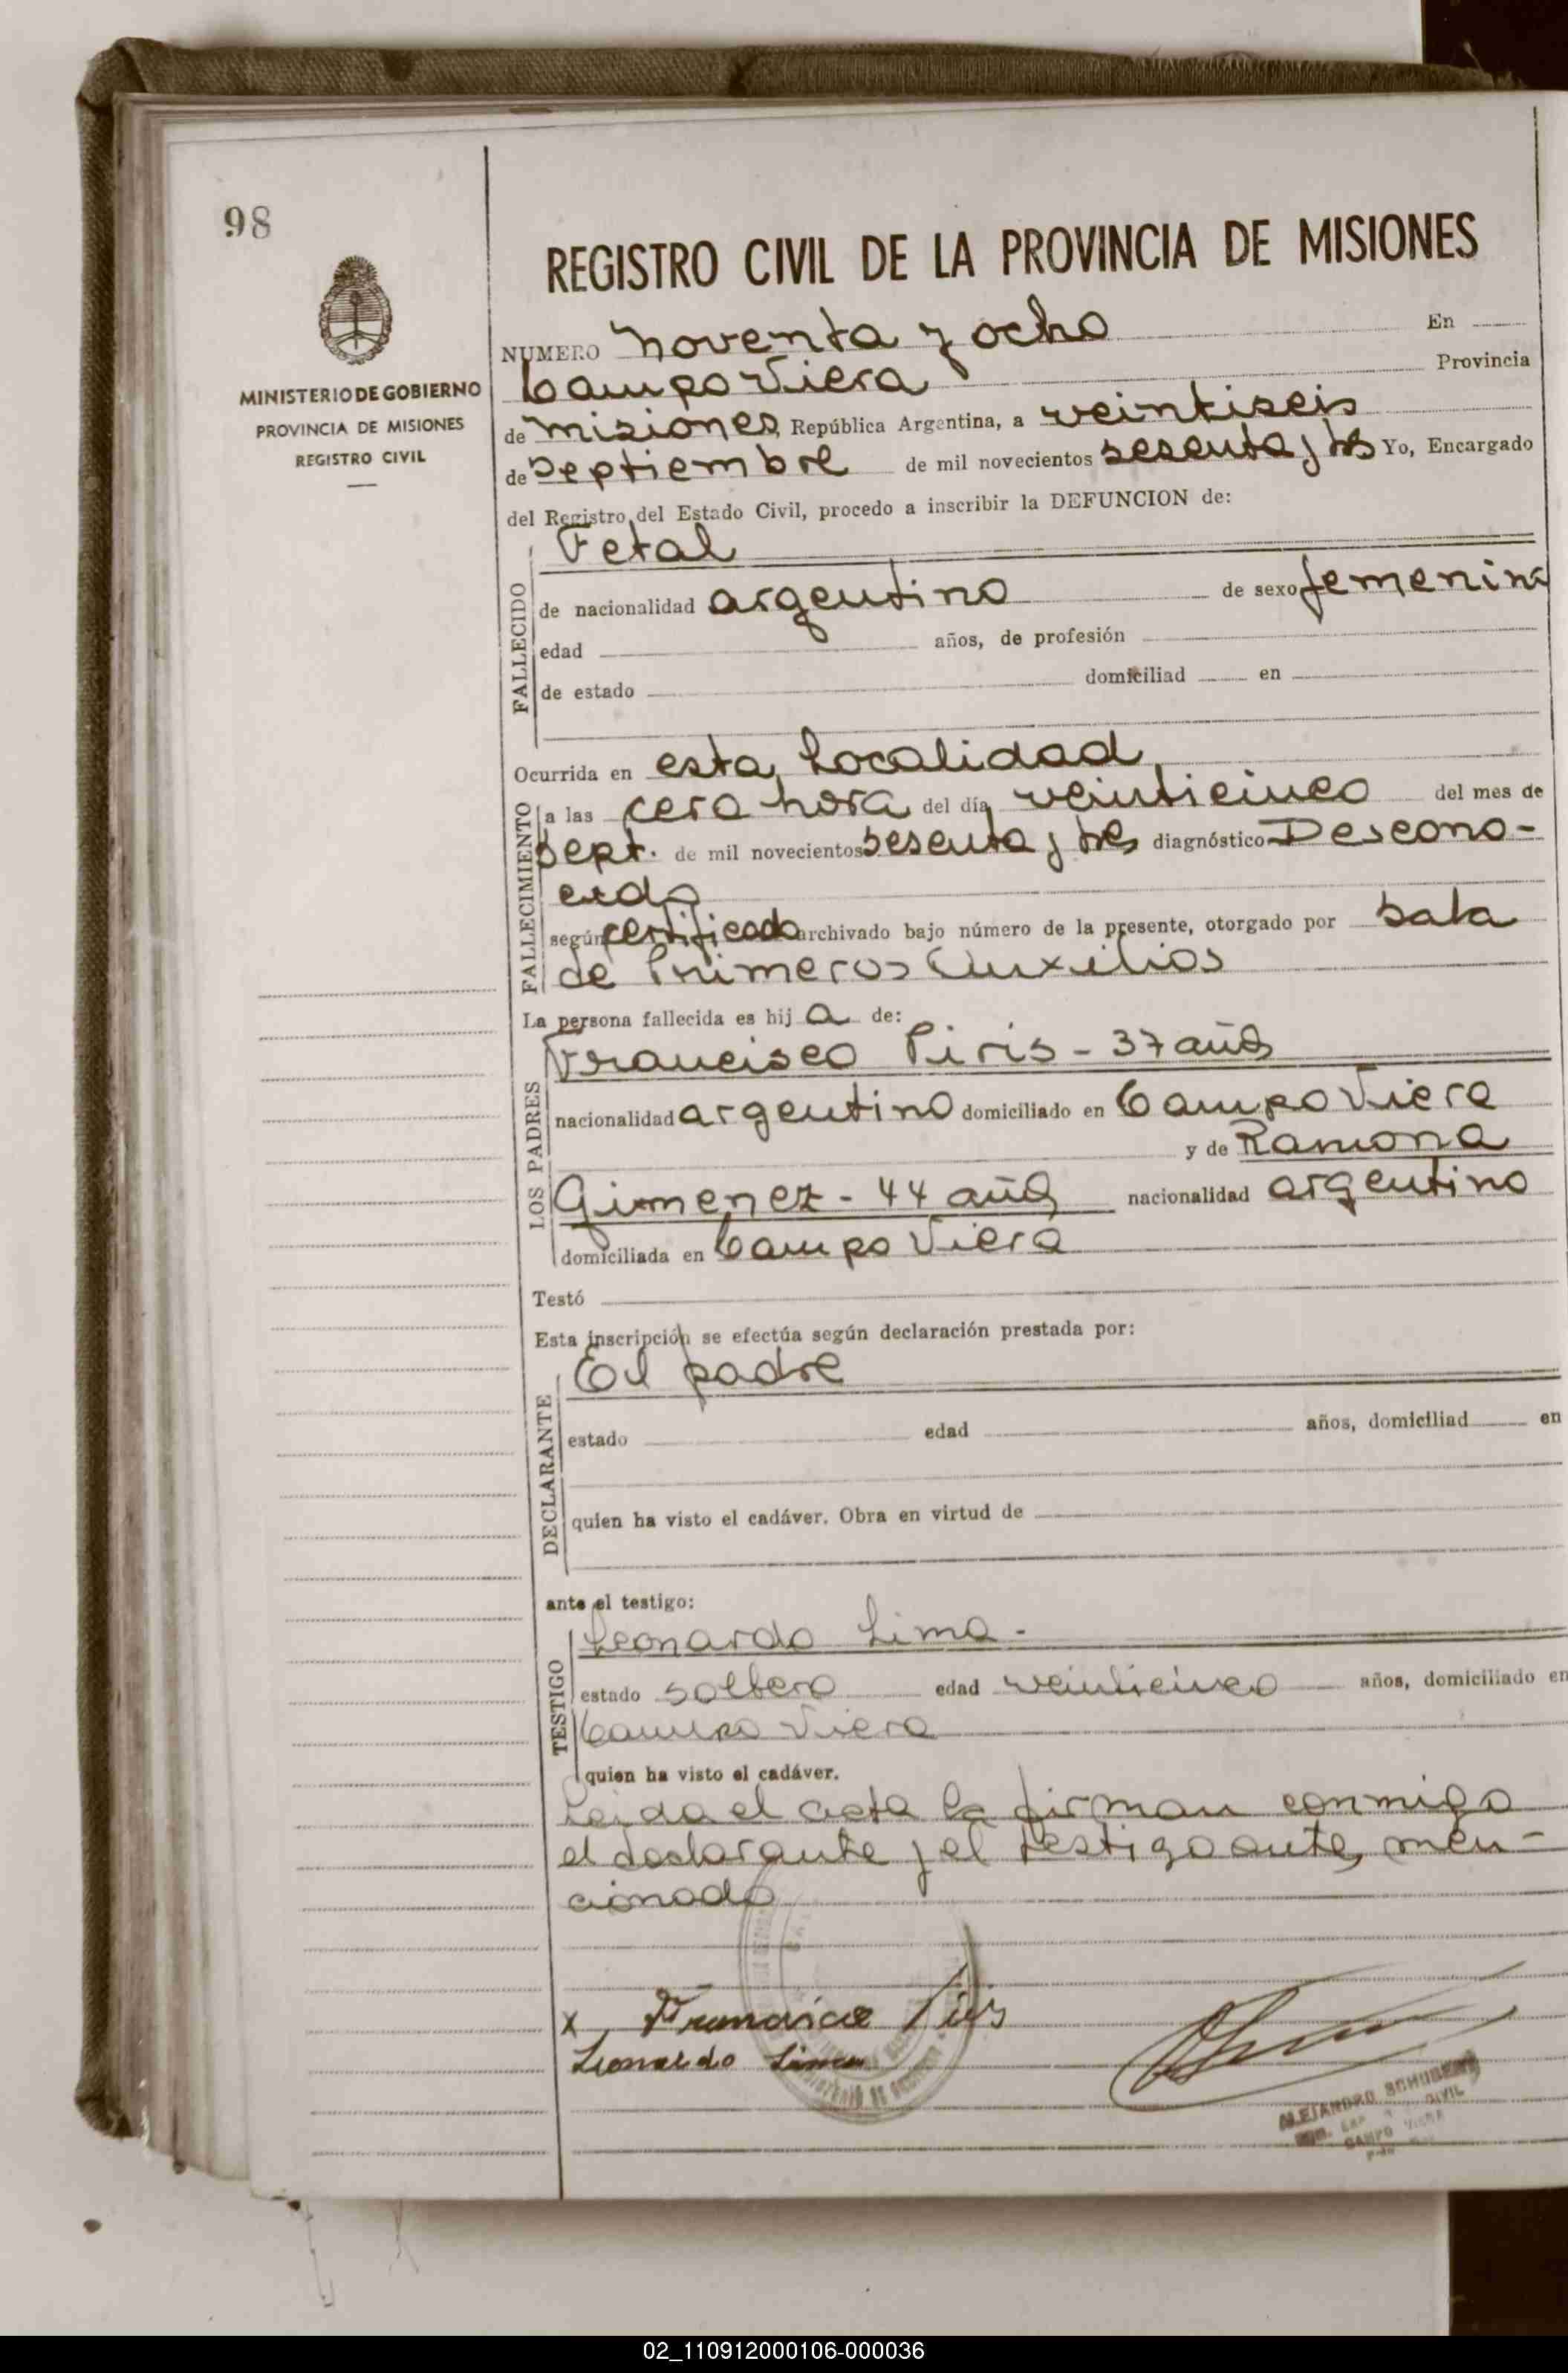 98
MINISTERIO DE GOBIERNO
PROVINCIA DE MISIONES
REGISTRO CIVIL
REGISTRO CIVIL DE LA PROVINCIA DE MISIONES
NUMERO Noventa y ocho En
Campo Viera Provincia
de Misiones, República Argentina, a veintiseis
de Septiembre de mil novecientos sesenta y tres Yo, Encargado
del Registro del Estado Civil, procedo a inscribir la DEFUNCION de:
FALLECIDO
Fetal
de nacionalidad argentino de sexo femenino
edad años, de profesión
de estado domiciliad en
Ocurrida en esta Localidad
FALLECIMIENTO
a las cero hora del día veinticinco del mes de
Sept. de mil novecientos sesenta y tres diagnóstico Descono-
cido
según certificado archivado bajo número de la presente, otorgado por Sala
de Primeros Auxilios
La persona fallecida es hij a de:
LOS PADRES
Francisco Piris - 37 años
nacionalidad argentino domiciliado en Campo Viera
y de Ramona
Gimenez - 44 años nacionalidad argentino
domiciliada en Campo Viera
Testó
Esta inscripción se efectúa según declaración prestada por:
DECLARANTE
El padre
estado edad años, domiciliad en
quien ha visto el cadáver. Obra en virtud de
ante el testigo:
TESTIGO
Leonardo Lima -
estado soltero edad veinticinco años, domiciliado en
Campo Viera
quien ha visto el cadáver.
Leida el acta la firman conmigo
el declarante y el testigo ante men-
cionado
x Francisco Piris
Leonardo Lima
ALEJANDRO SCHUBERT
CIVIL
CAMPO VIERA
02_110912000106-000036